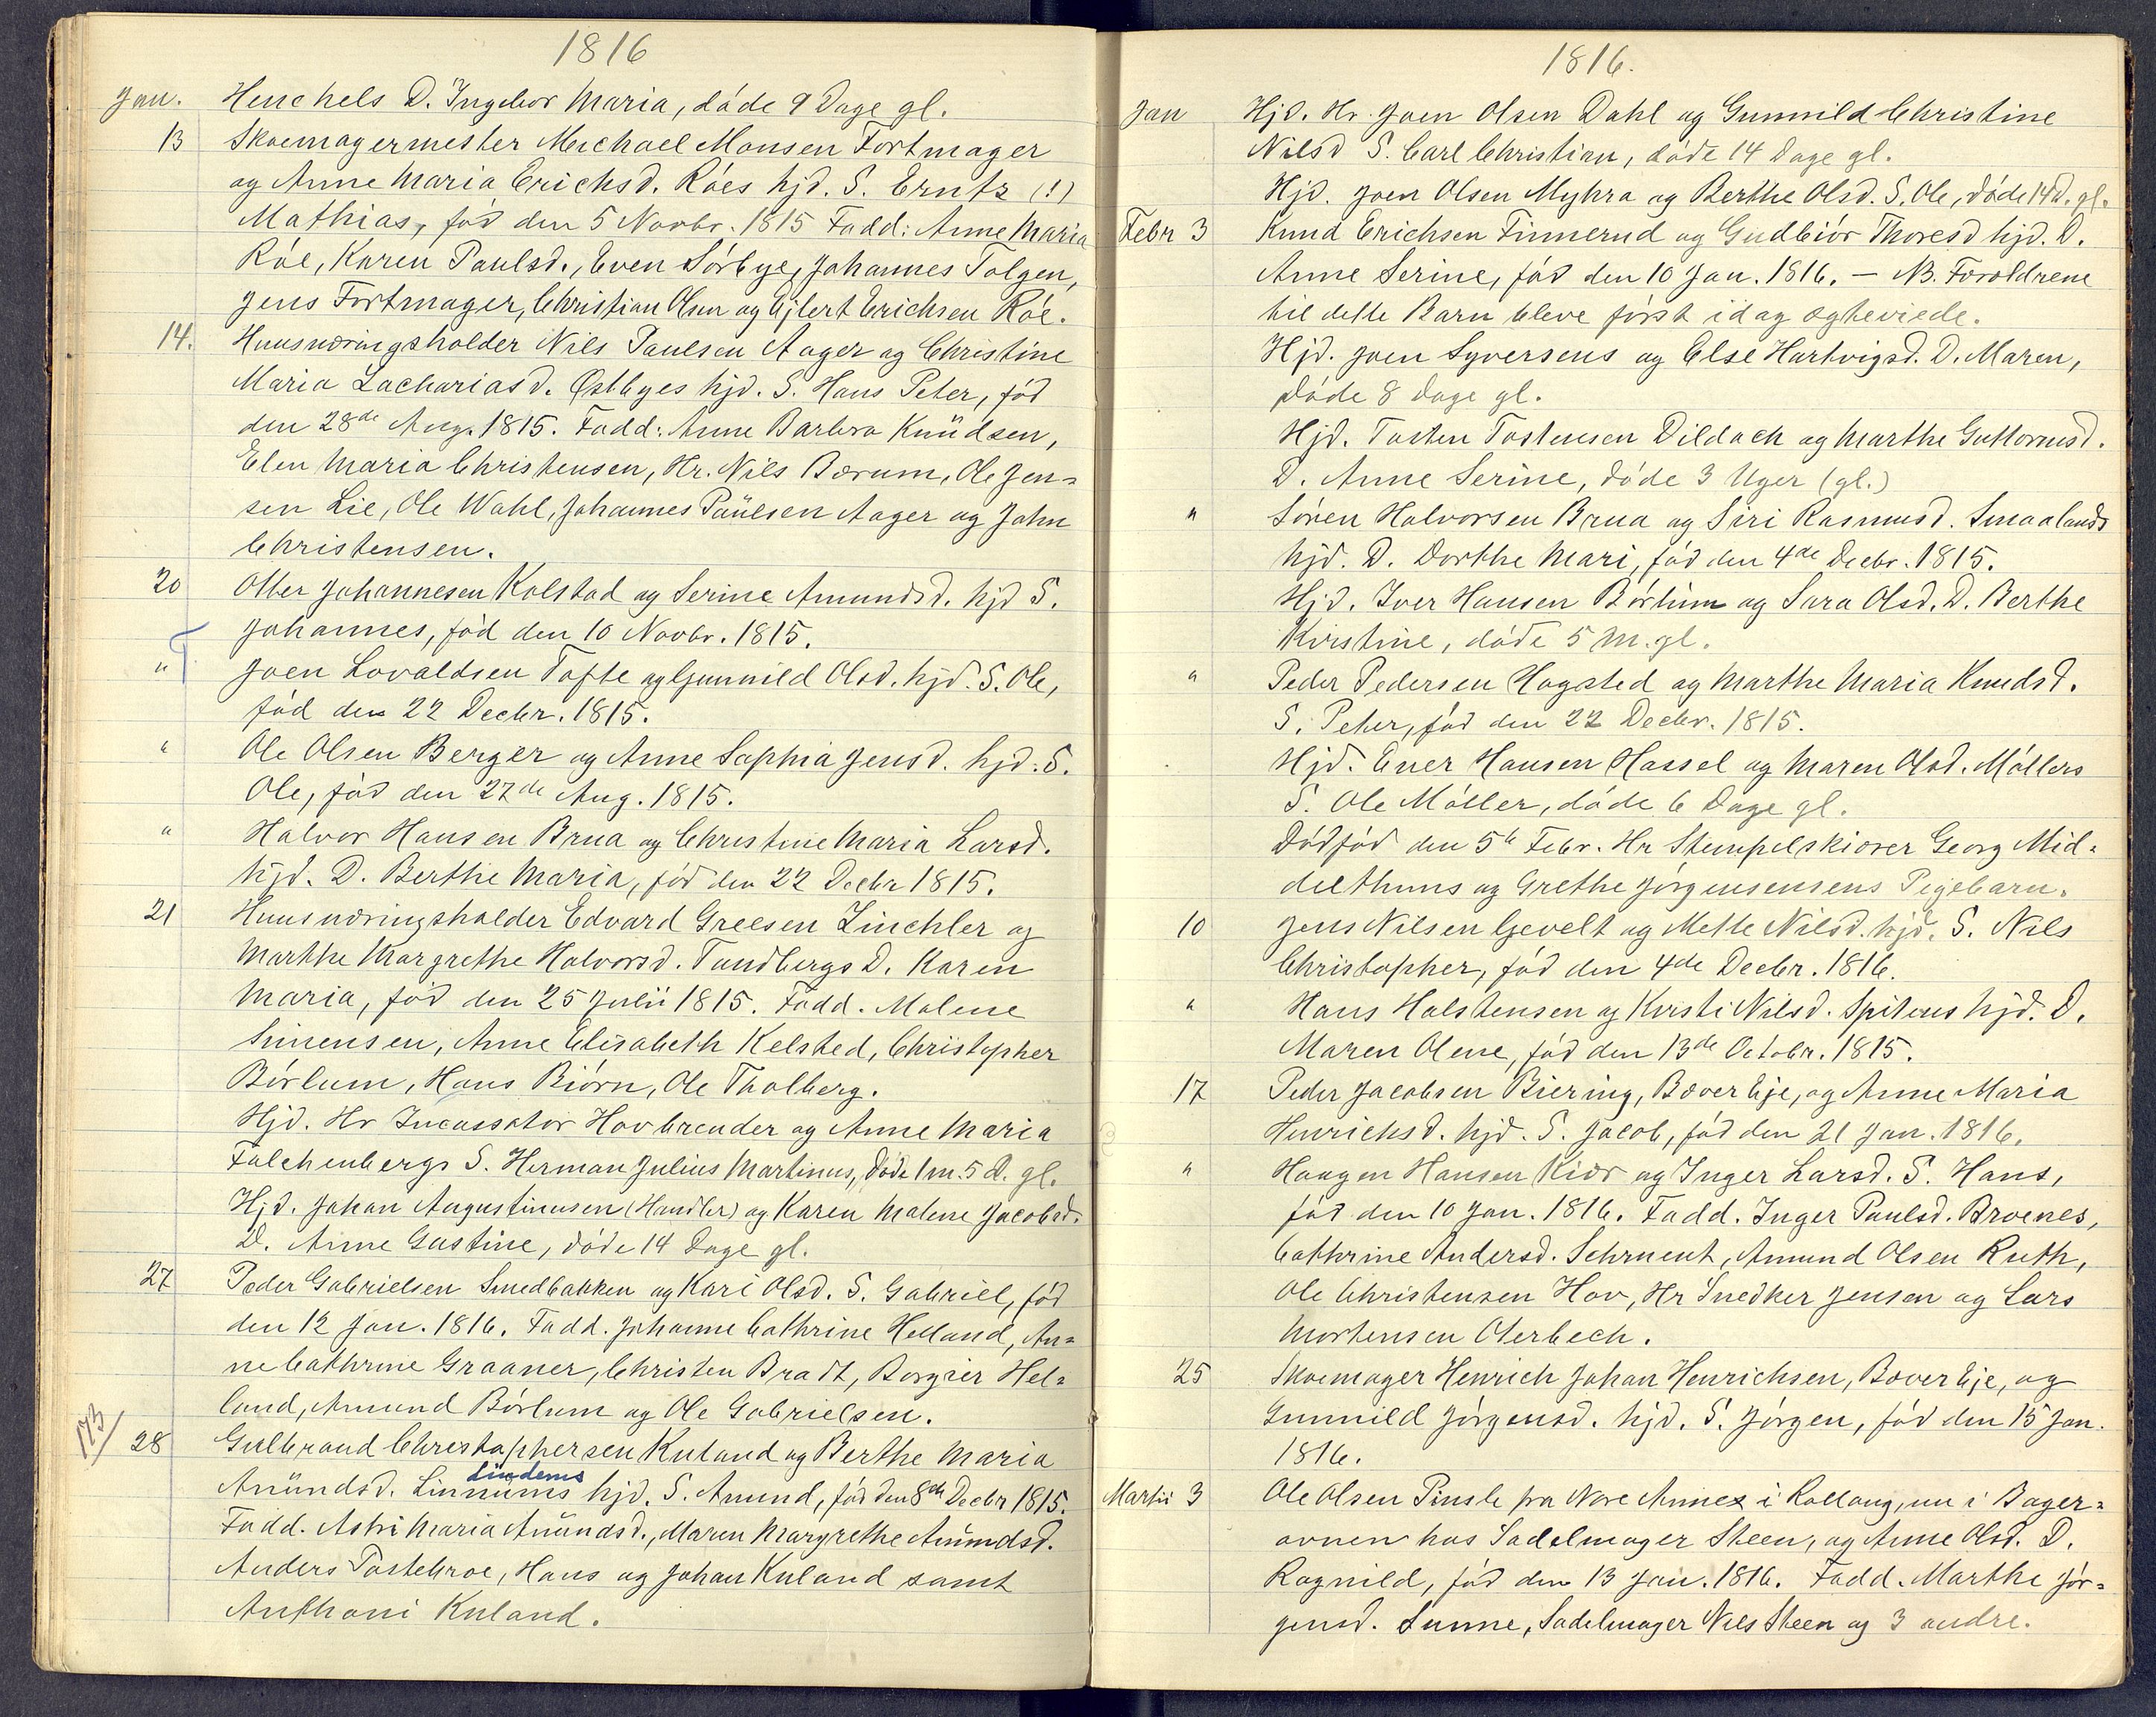 1816
Jan. Henchels D. Ingebor Maria, døde 9 Dage gl.
13 Skoemagermester Michael Monsen Fortmager
og Anne Maria Erichsd. Róes hjd. S. Erntz (!)
Mathias, fód den 5 Novbr. 1815 Fadd: Anne Maria
Róe, Karen Paulsd., Even Sórbye, Johannes Tolgen,
Jens Fortmager, Christian Olsen og Ejlert Erichsen Róe.
14. Huusnæringsholder Nils Paulsen Aager og Christine
Maria Zachariasd. Østbyes hjd. S. Hans Peter, fód
den 28de Aug. 1815. Fadd: Anne Barbra Knüdsen,
Elen Maria Christensen, Hr. Nils Bærum, Ole Jen=
sen Lie, Ole Wahl, Johannes Paülsen Aager og John
Christensen.
20 Otter Johannesen Kolstad og Serine Amundsd. hjd S.
Johannes, fód den 10 Novbr. 1815.
" Joen Lovaldsen Tofte og Gunnild Olsd. hjd. S. Ole,
fód den 22 Decbr. 1815.
" Ole Olsen Berger og Anne Saphia Jensd. hjd. S.
Ole, fód den 27de Aug. 1815.
" Halvor Hansen Brua og Christine Maria Larsd.
hjd. D. Berthe Maria, fód den 22 Decbr 1815.
21 Huusnæringsholder Edvard Greesen Zinchler og
Marthe Margrethe Halvorsd. Tandbergs D. Karen
Maria, fód den 25 Julii 1815. Fadd. Malene
Simensen, Anne Elisabeth Kelsted, Christopher
Bórlum, Hans Biórn, Ole Thalberg.
Hjd. Hr Incassator Hovbrender og Anne Maria
Falchenbergs S. Herman Julius Martinus, døde 1 m. 5 d. gl.
Hjd. Johan Augustinusen (Handler) og Karen Malene Jacobsd.
D. Anne Gustine, døde 14 Dage gl.
27 Peder Gabrielsen Smedbakken og Kari Olsd. S. Gabriel, fód
den 12 Jan. 1816. Fadd. Johanne Cathrine Helland, An=
ne Cathrine Graaner, Christen Bradt, Borgier Hel=
land, Amund Bórlum og Ole Gabrielsen.
173/ 28 Gulbrand Christophersen Kuland og Berthe Maria
Lindems
Amündsd. Linnums hjd. S. Amund, fód den 8de Decbr 1815.
Fadd. Astri Maria Amündsd., Maren Margrethe Amündsd.
Anders Tastebroe, Hans og Johan Kuland samt
Anthoni Kuland.
1816.
Jan Hjd. Hr. Joen Olsen Dahl og Gunnild Christine
Nilsd S. Carl Christian, døde 14 Dage gl.
Hjd. Joen Olsen Myhra og Berthe Olsd. S. Ole, døde 14 d. gl.
Febr 3 Knud Erichsen Finnerud og Gudbiór Thoresd hjd. D.
Anne Serine, fód den 10 Jan. 1816. — NB. Foroldrene
til dette Barn bleve fórst idag ægteviede.
Hjd. Joen Syversens og Else Hartvigsd. D. Maren,
døde 8 Dage gl.
Hjd. Tosten Tostensen Dildach og Marthe Guttormsd.
D. Anne Serine, døde 3 Uger (gl.)
" Sóren Halvorsen Brua og Siri Rasmusd. Smaalands
hjd. D. Dorthe Mari, fód den 4de Decbr. 1815.
Hjd. Iver Hansen Bórlum og Sara Olsd. D. Berthe
Kirstine, døde 5 M. gl.
" Peder Pedersen Hogsted og Marthe Maria Knudsd.
S. Peter, fód den 22 Decbr. 1815.
Hjd. Ener Hansen Hassel og Maren Olsd. Mállers
S. Ole Móller, døde 6 Dage gl.
Dódfód den 5te Febr. Hr Stempelskiærer Georg Mid=
delthuns og Grethe Jórgensensens Pigebarn.
10 Jens Nilsen Gevelt og Mette Nilsd. hjd. S. Nils
Christopher, fód den 4de Decbr. 1816.
" Hans Halstensen og Kirsti Nilsd. Spitens hjd. D.
Maren Olene, fód den 13de Octobr. 1815.
17 Peder Jacobsen Biering, Bæver Eje, og Anne Maria
Henrichsd. hjd. S. Jacob, fód den 21 Jan. 1816.
" Haagen Hansen Kiær og Inger Larsd. S. Hans,
fód den 10 Jan. 1816. Fadd. Inger Paulsd. Broenes,
Cathrine Andersd. Schruent, Amund Olsen Ruth,
Ole Christensen Hov, Hr Snedker Jensen og Lars
Mortensen Oterbech.
25 Skoemager Henrich Johan Henrichsen, Bæver Eje, og
Gunnild Jórgensd. hjd. S. Jórgen, fód den 15 Jan.
1816.
Martii 3 Ole Olsen Pinsle fra Nore Annex i Rollaug, nu i Bager=
ovnen hos Sadelmager Steen, og Anne Olsd. D.
Ragnild, fód den 13 Jan. 1816. Fadd. Marthe Jór=
gensd. Sunne, Sadelmager Nils Steen og 3 andre.